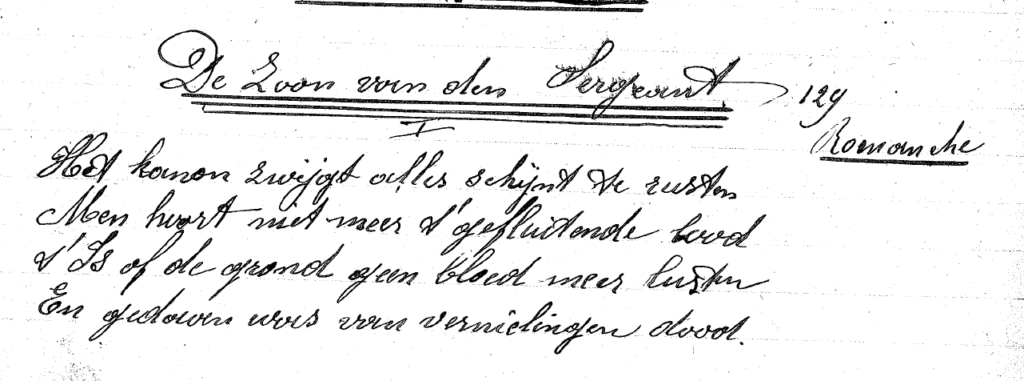 De Zoon van den Sergeant
129
Romanche
I
Het kanon zwijgt alles schijnt te rusten
Men hoort niet meer t'gefluitende lood
t'Is of de grond geen bloed meer lusten
En gedaven was van vernielingen dood.